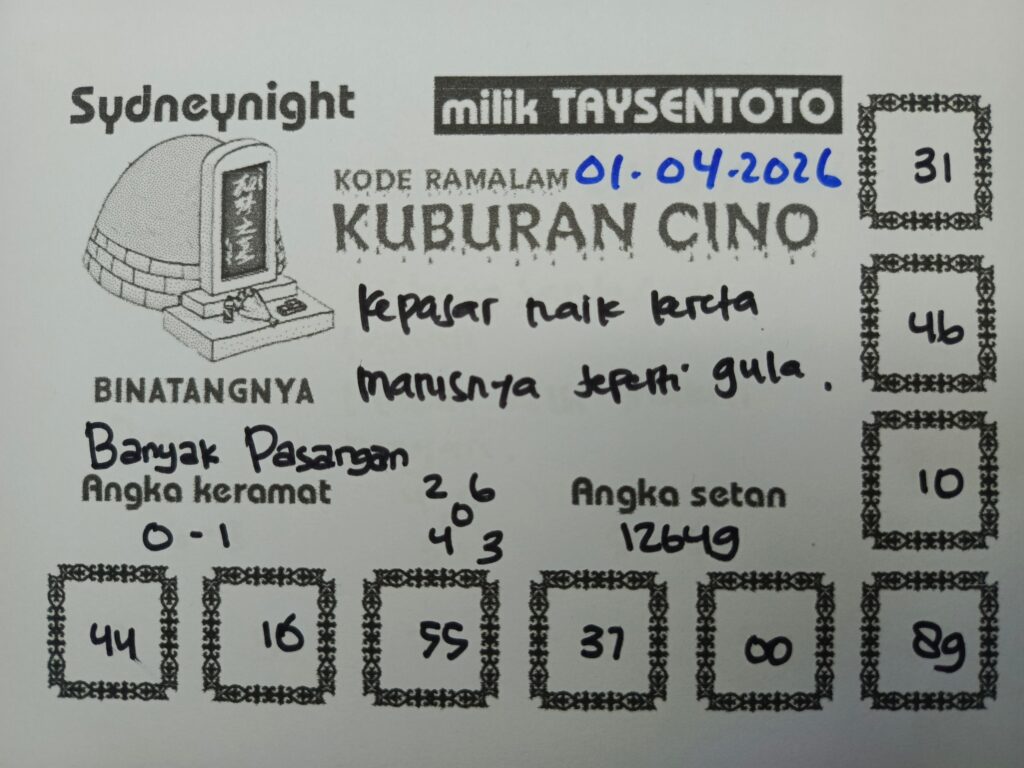 Sydneynight
milik TAYSENTOTO
KODE RAMALAM 01.04.2026
KUBURAN CINO
Kepasar naik kereta
manisnya seperti gula.
BINATANGNYA
Banyak Pasangan
Angka keramat
0 - 1
2 6
0
4 3
Angka setan
12649
31
46
10
44 16 55 37 00 89